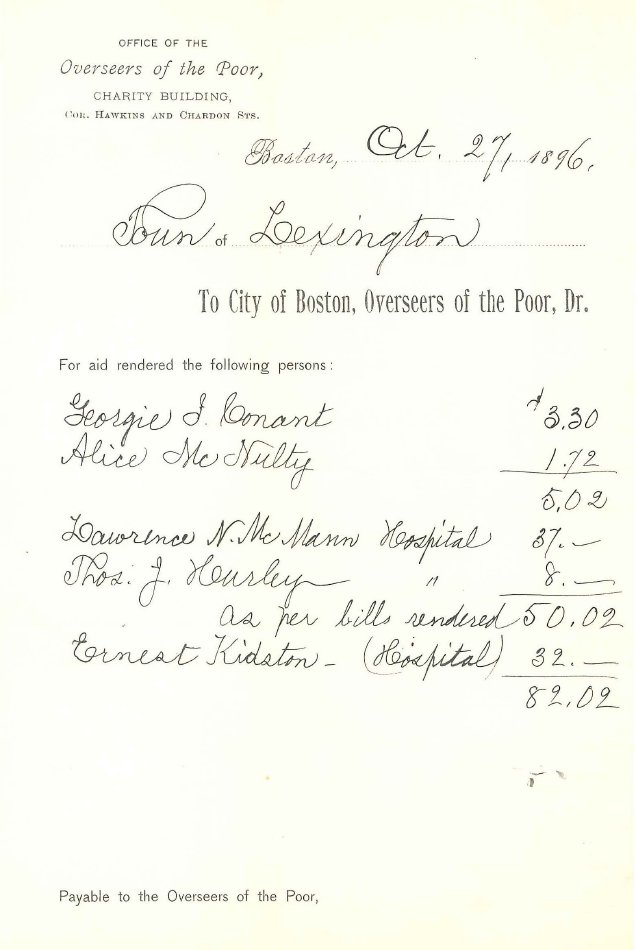 OFFICE OF THE
Overseers of the Poor,
CHARITY BUILDING,
COR. HAWKINS AND CHARDON STS.
Boston, Oct. 27, 1896.
Town of Lexington
To City of Boston, Overseers of the Poor, Dr.
For aid rendered the following persons:
Georgie I. Conant $3.30
Alice McNulty 1.72
5.02
Lawrence N. McMann Hospital 37.—
Thos. J. Hurley — " 8.—
as per bills rendered 50.02
Ernest Kidston - (Hospital) 32.—
82.02
Payable to the Overseers of the Poor,